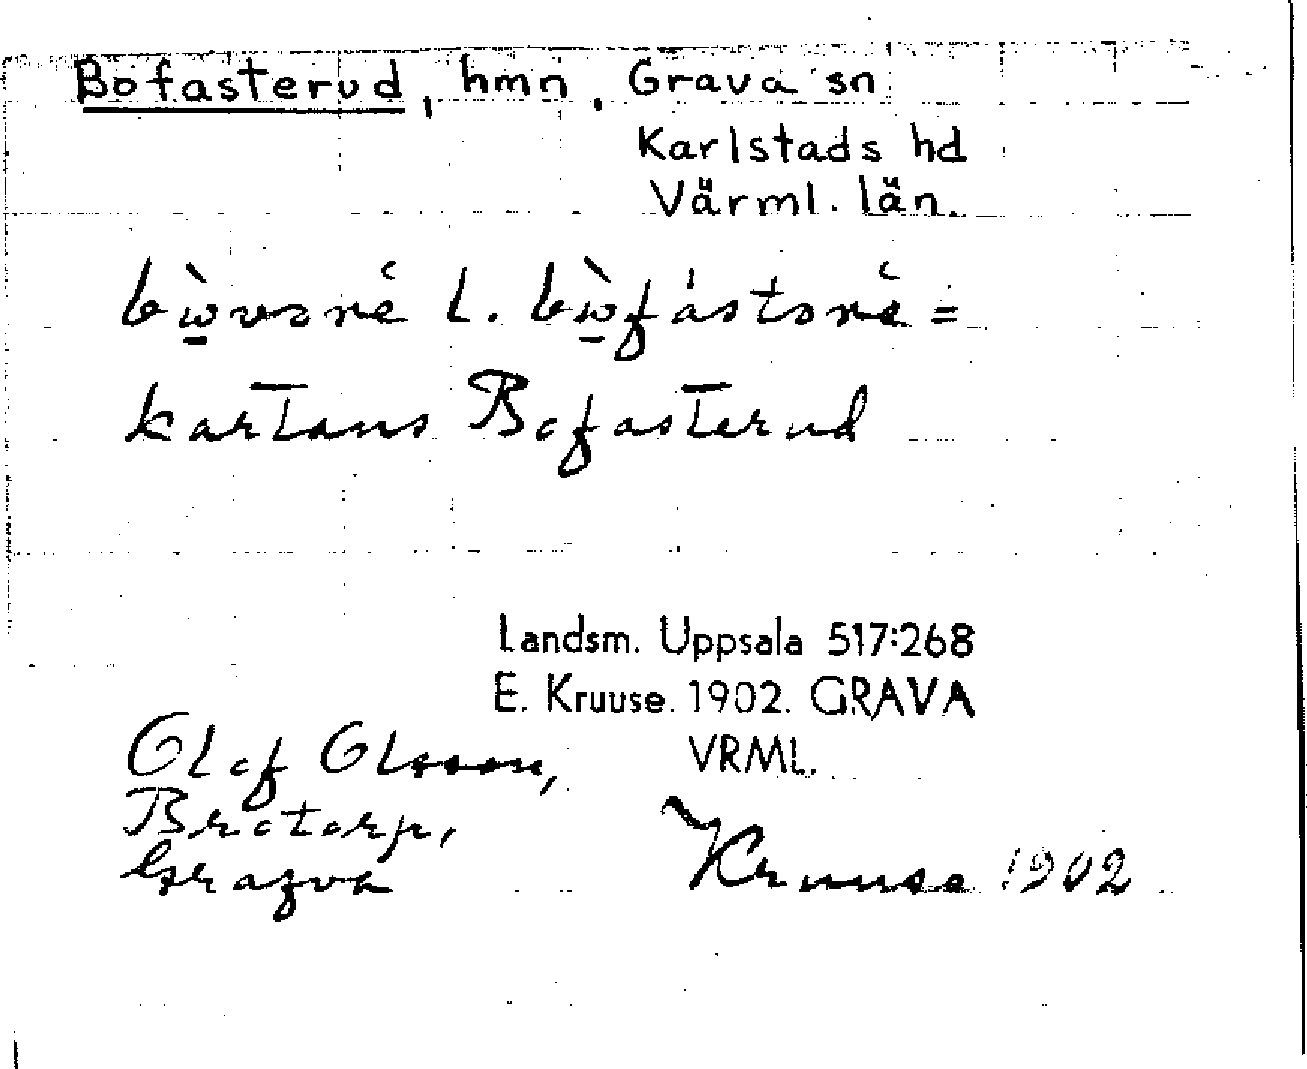 Bofasterud, hmn, Grava sn
Karlstads hd
Värml. län.
l. =
kartans Bofasterud
Landsm. Uppsala 517:268
E. Kruuse. 1902. GRAVA
VRML.
Olof Olsson,
Brotorp,
Grafva
Kruuse 1902